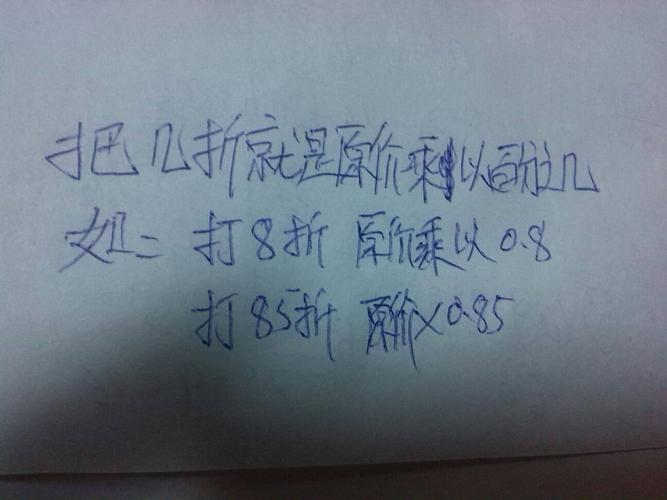 把几折就是原价乘以百分之几
如: 打8折 原价乘以0.8
打85折 原价×0.85